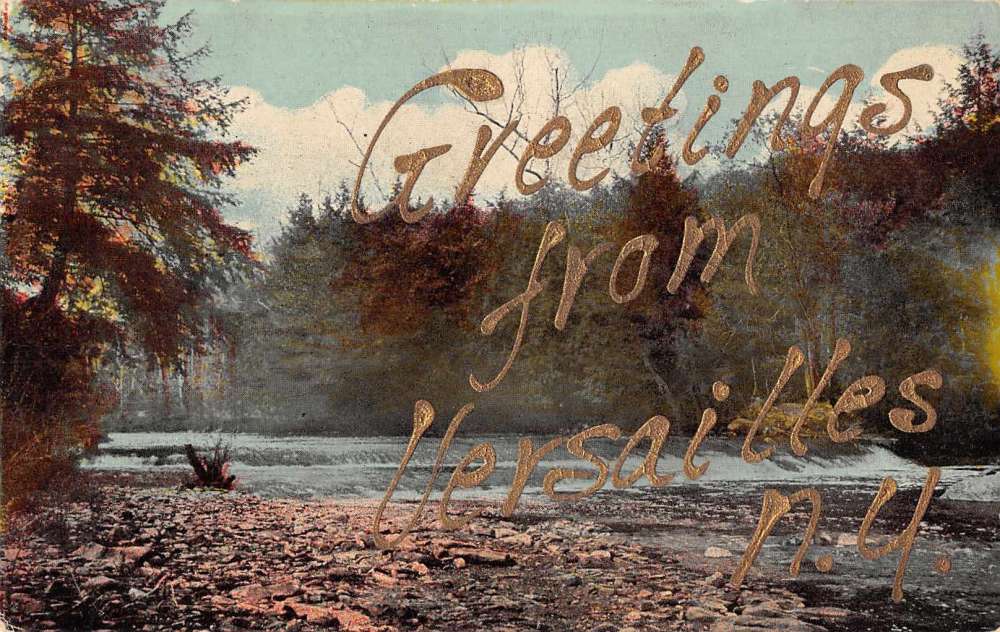 Greetings
from
Versailles
n.y.